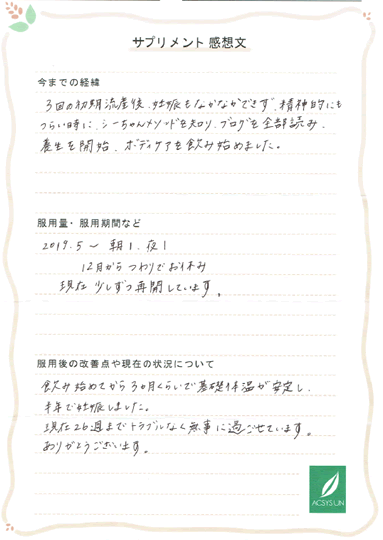 サプリメント 感想文
今までの経緯
3回の初期流産後、妊娠もなかなかできず、精神的にも
つらい時に、シーちゃんメソッドを知り、ブログを全部読み、
養生を開始、ボディケアを飲み始めました。
服用量・服用期間など
2019.5 〜 朝1、夜1
12月から つわりでお休み
現在 少しずつ再開しています。
服用後の改善点や現在の状況について
飲み始めてから3カ月くらいで基礎体温が安定し、
半年で妊娠しました。
現在26週までトラブルなく無事に過ごせています。
ありがとうございます。
ACSYS LIN